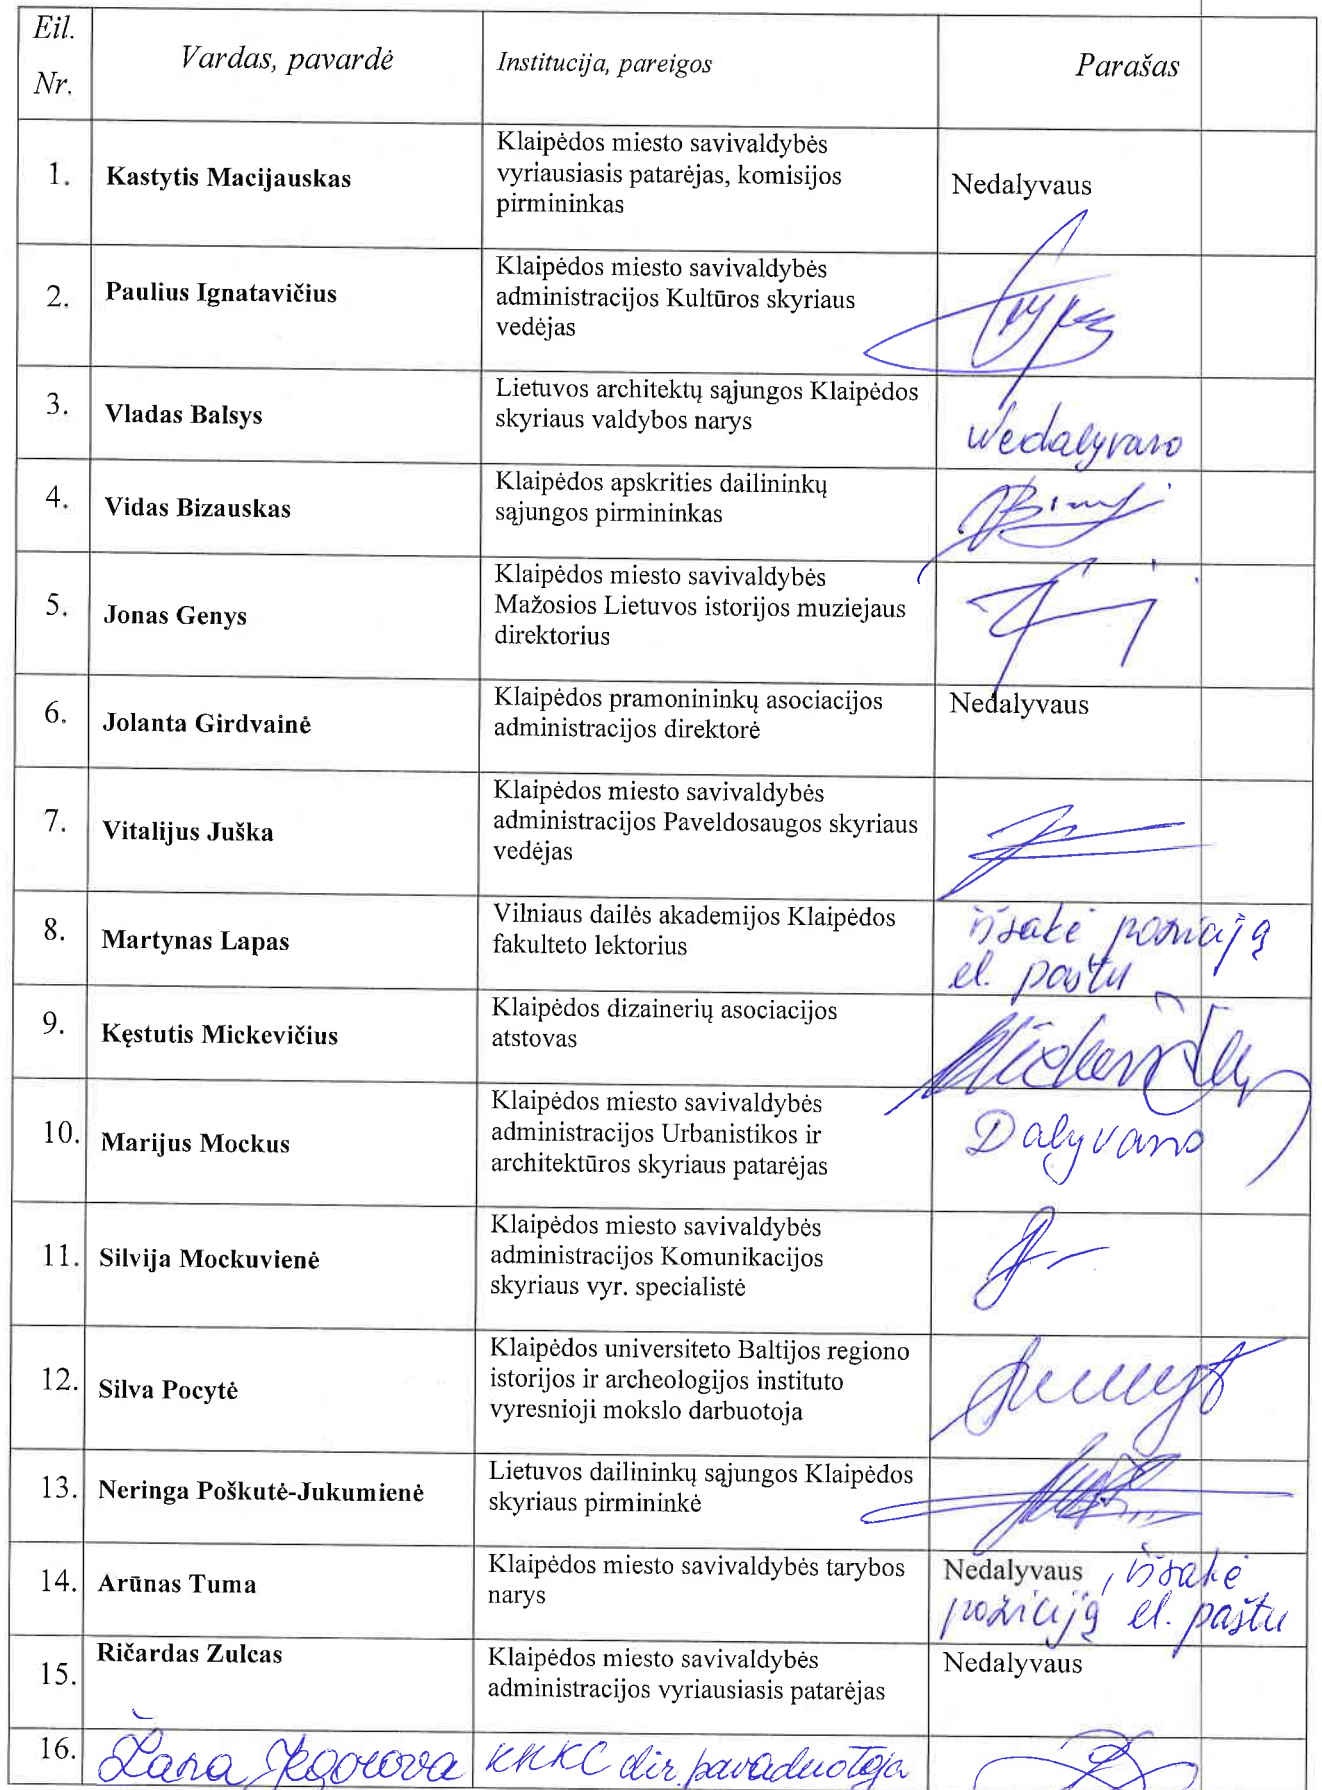 Eil.
Nr.
Vardas, pavardė
Institucija, pareigos
Parašas
1.
Kastytis Macijauskas
Klaipėdos miesto savivaldybės
vyriausiasis patarėjas, komisijos
pirmininkas
Nedalyvaus
2.
Paulius Ignatavičius
Klaipėdos miesto savivaldybės
administracijos Kultūros skyriaus
vedėjas
3.
Vladas Balsys
Lietuvos architektų sąjungos Klaipėdos
skyriaus valdybos narys
Nedalyvavo
4.
Vidas Bizauskas
Klaipėdos apskrities dailininkų
sąjungos pirmininkas
5.
Jonas Genys
Klaipėdos miesto savivaldybės
Mažosios Lietuvos istorijos muziejaus
direktorius
6.
Jolanta Girdvainė
Klaipėdos pramonininkų asociacijos
administracijos direktorė
Nedalyvaus
7.
Vitalijus Juška
Klaipėdos miesto savivaldybės
administracijos Paveldosaugos skyriaus
vedėjas
8.
Martynas Lapas
Vilniaus dailės akademijos Klaipėdos
fakulteto lektorius
išsakė poziciją
el. paštu
9.
Kęstutis Mickevičius
Klaipėdos dizainerių asociacijos
atstovas
10.
Marijus Mockus
Klaipėdos miesto savivaldybės
administracijos Urbanistikos ir
architektūros skyriaus patarėjas
Dalyvavo
11.
Silvija Mockuvienė
Klaipėdos miesto savivaldybės
administracijos Komunikacijos
skyriaus vyr. specialistė
12.
Silva Pocytė
Klaipėdos universiteto Baltijos regiono
istorijos ir archeologijos instituto
vyresnioji mokslo darbuotoja
13.
Neringa Poškutė-Jukumienė
Lietuvos dailininkų sąjungos Klaipėdos
skyriaus pirmininkė
14.
Arūnas Tuma
Klaipėdos miesto savivaldybės tarybos
narys
Nedalyvaus, išsakė
poziciją el. paštu
15.
Ričardas Zulcas
Klaipėdos miesto savivaldybės
administracijos vyriausiasis patarėjas
Nedalyvaus
16.
Žana Jegorova
KKKC dir. pavaduotoja